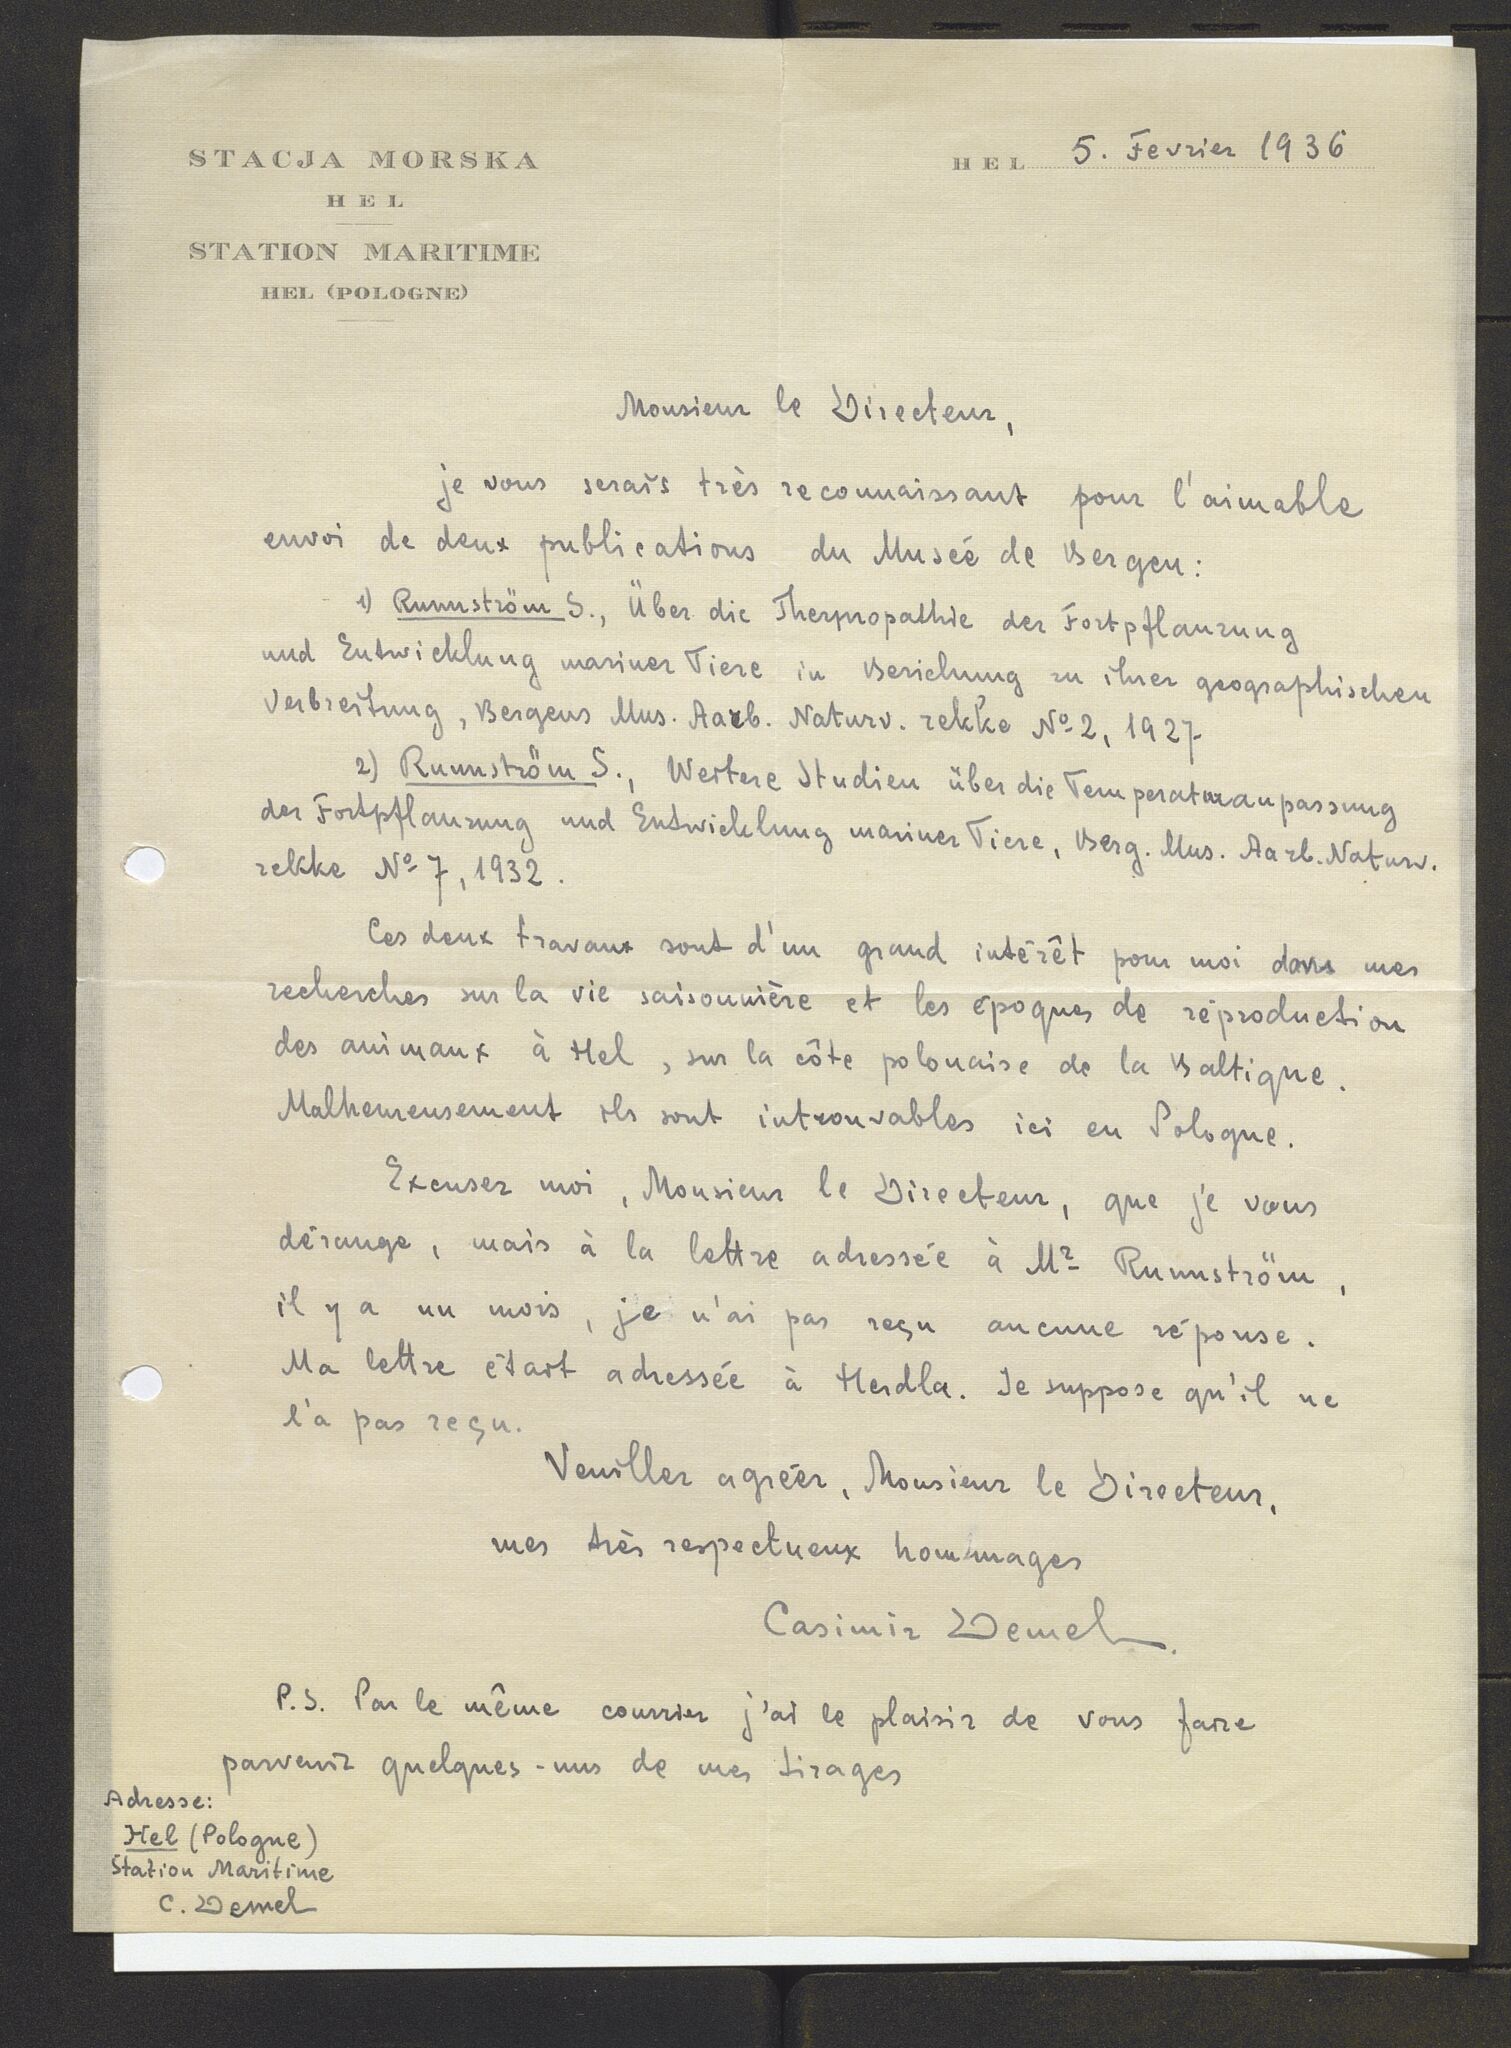 STACJA MORSKA
HEL
STATION MARITIME
HEL (POLOGNE)
HEL 5. Fevrier 1936
Monsieur le Directeur,
je vous serais très reconnaissant pour l'aimable
envoi de deux publications du Museé de Bergen:
1) Runnström S., Über die Thermopathie der Fortpflanzung
und Entwicklung mariner Tiere in Beziehung zu ihrer geographischen
Verbreitung, Bergens Mus. Aarb. Naturv. rekke No 2, 1927
2) Runnström S., Weitere Studien über die Temperaturanpassung
der Fortpflanzung und Entwicklung mariner Tiere, Berg. Mus. Aarb. Naturv.
rekke No 7, 1932.
Ces deux travaux sont d'un grand intérêt pour moi dans mes
recherches sur la vie saisonnière et les époques de réproduction
des animaux à Hel, sur la côte polonaise de la Baltique.
Malheureusement ils sont introuvables ici en Pologne.
Excusez moi, Monsieur le Directeur, que je vous
dérange, mais à la lettre adressée à Mr Runnström,
il y a un mois, je n'ai pas reçu aucune réponse.
Ma lettre était adressée à Herdla. Je suppose qu'il ne
l'a pas reçu.
Veuillez agréer, Monsieur le Directeur,
mes très respectueux hommages
Casimir Demel.
P.S. Par le même courrier j'ai le plaisir de vous faire
parvenir quelques-uns de mes tirages
Adresse:
Hel (Pologne)
Station Maritime
C. Demel